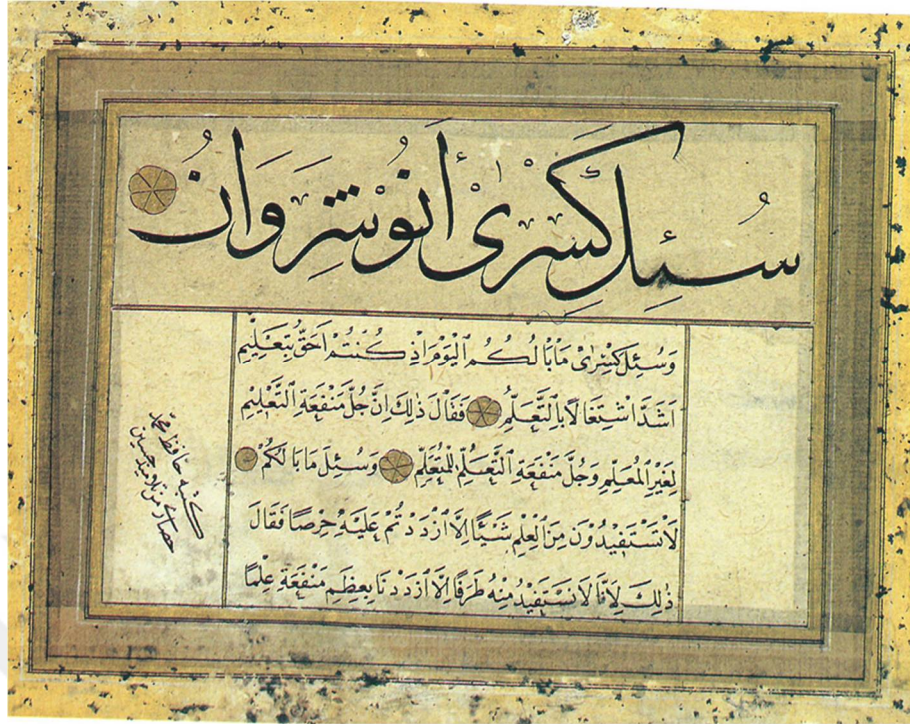 سُئِلَ كَسْرٰى أَنُوْشِرَوَانُ
وَسُئِلَ كَسْرٰى مَا بَا لُكُمُ الْيَوْمَ اِذِ كُنْتُمْ اَحَقُّ بِتَعْلِيْمٍ
اَشَدَّ اشْتِغَا لًا بِالتَّعَلُّمِ فَقَالَ ذٰلِكَ اِنَّ جُلَّ مَنْفَعَةِ التَّعْلِيْمِ
لِغَيْرِ الْمُعَلِّمِ وَجُلَّ مَنْفَعَةِ التَّعَلُّمِ لِلْمُتَعَلِّمِ وَسُئِلَ مَا بَا لُكُمْ
لَا تَسْتَفِيْدُوْنَ مِنَ الْعِلْمِ شَيْئًا اِلَّا ازْدَدْتُمْ عَلَيْهِ حِرْصًا فَقَالَ
ذٰلِكَ لِاَنَّا لَا نَسْتَفِيْدُ مِنْهُ طَرَفًا اِلَّا ازْدَدْنَا بِعِظَمِ مَنْفَعَةِ عِلْمًا
كتبه حافظ محمد
من تلاميذ حسين